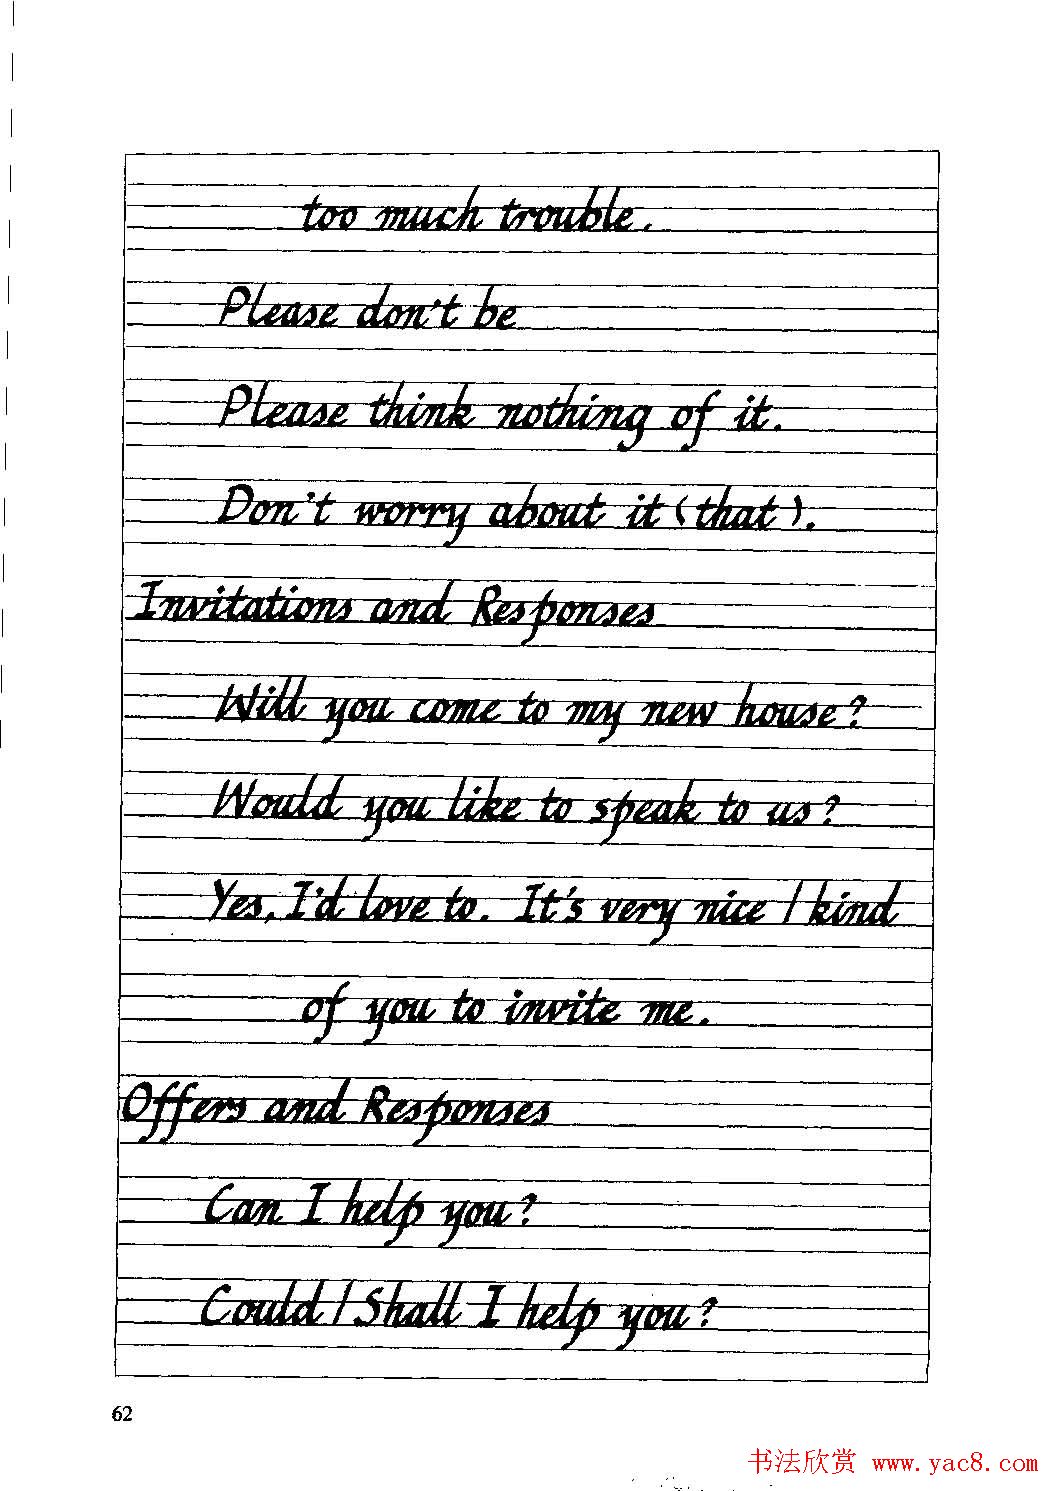 too much trouble.
Please don't be
Please think nothing of it.
Don't worry about it (that).
Invitations and Responses
Will you come to my new house?
Would you like to speak to us?
Yes, I'd love to. It's very nice / kind
of you to invite me.
Offers and Responses
Can I help you?
Could / Shall I help you?
62
书法欣赏 www.yac8.com